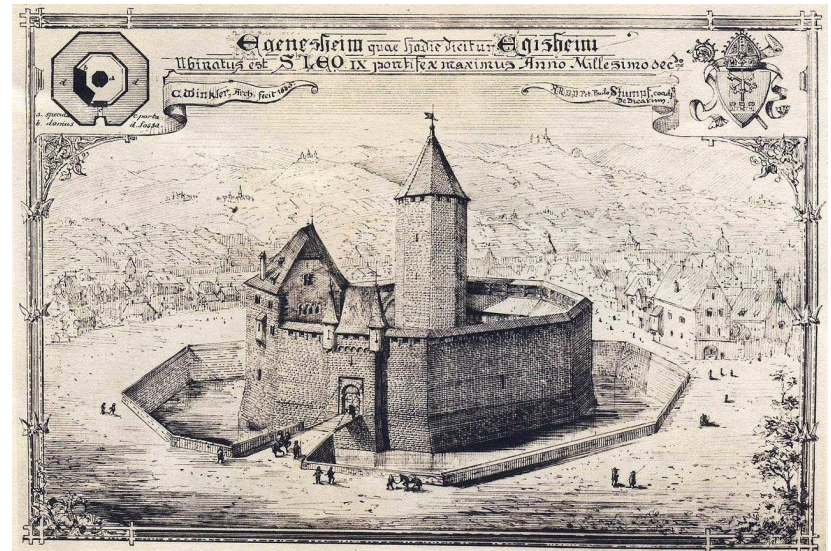 Egenesheim quae hodie dicitur Egisheim
Ubi natus est S. LEO IX pontifex maximus Anno Millesimo sec.do
C. Winkler, Arch. fecit
Stumpf, coadj.
Dedicatum.
a. specula c. porta
b. domus d. fossa.